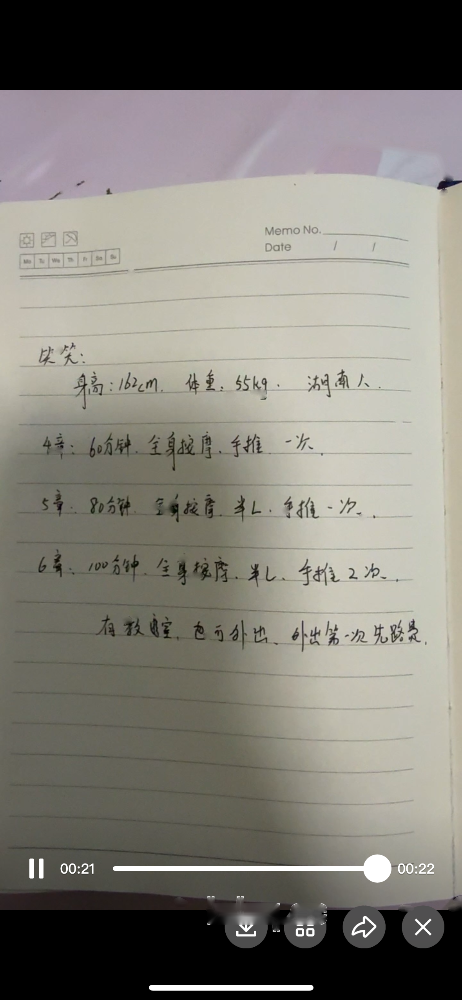 Memo No.
Date / /
Mo Tu We Th Fr Sa Su
笑笑:
身高:162cm. 体重:55kg. 湖南人.
4音: 60分钟. 全身按摩. 手推 一次.
5音: 80分钟. 全身按摩. 半L. 手推一次.
6音: 100分钟. 全身按摩. 半L. 手推2次.
有教室. 也可外出. 外出第一次先路费.
00:21
00:22